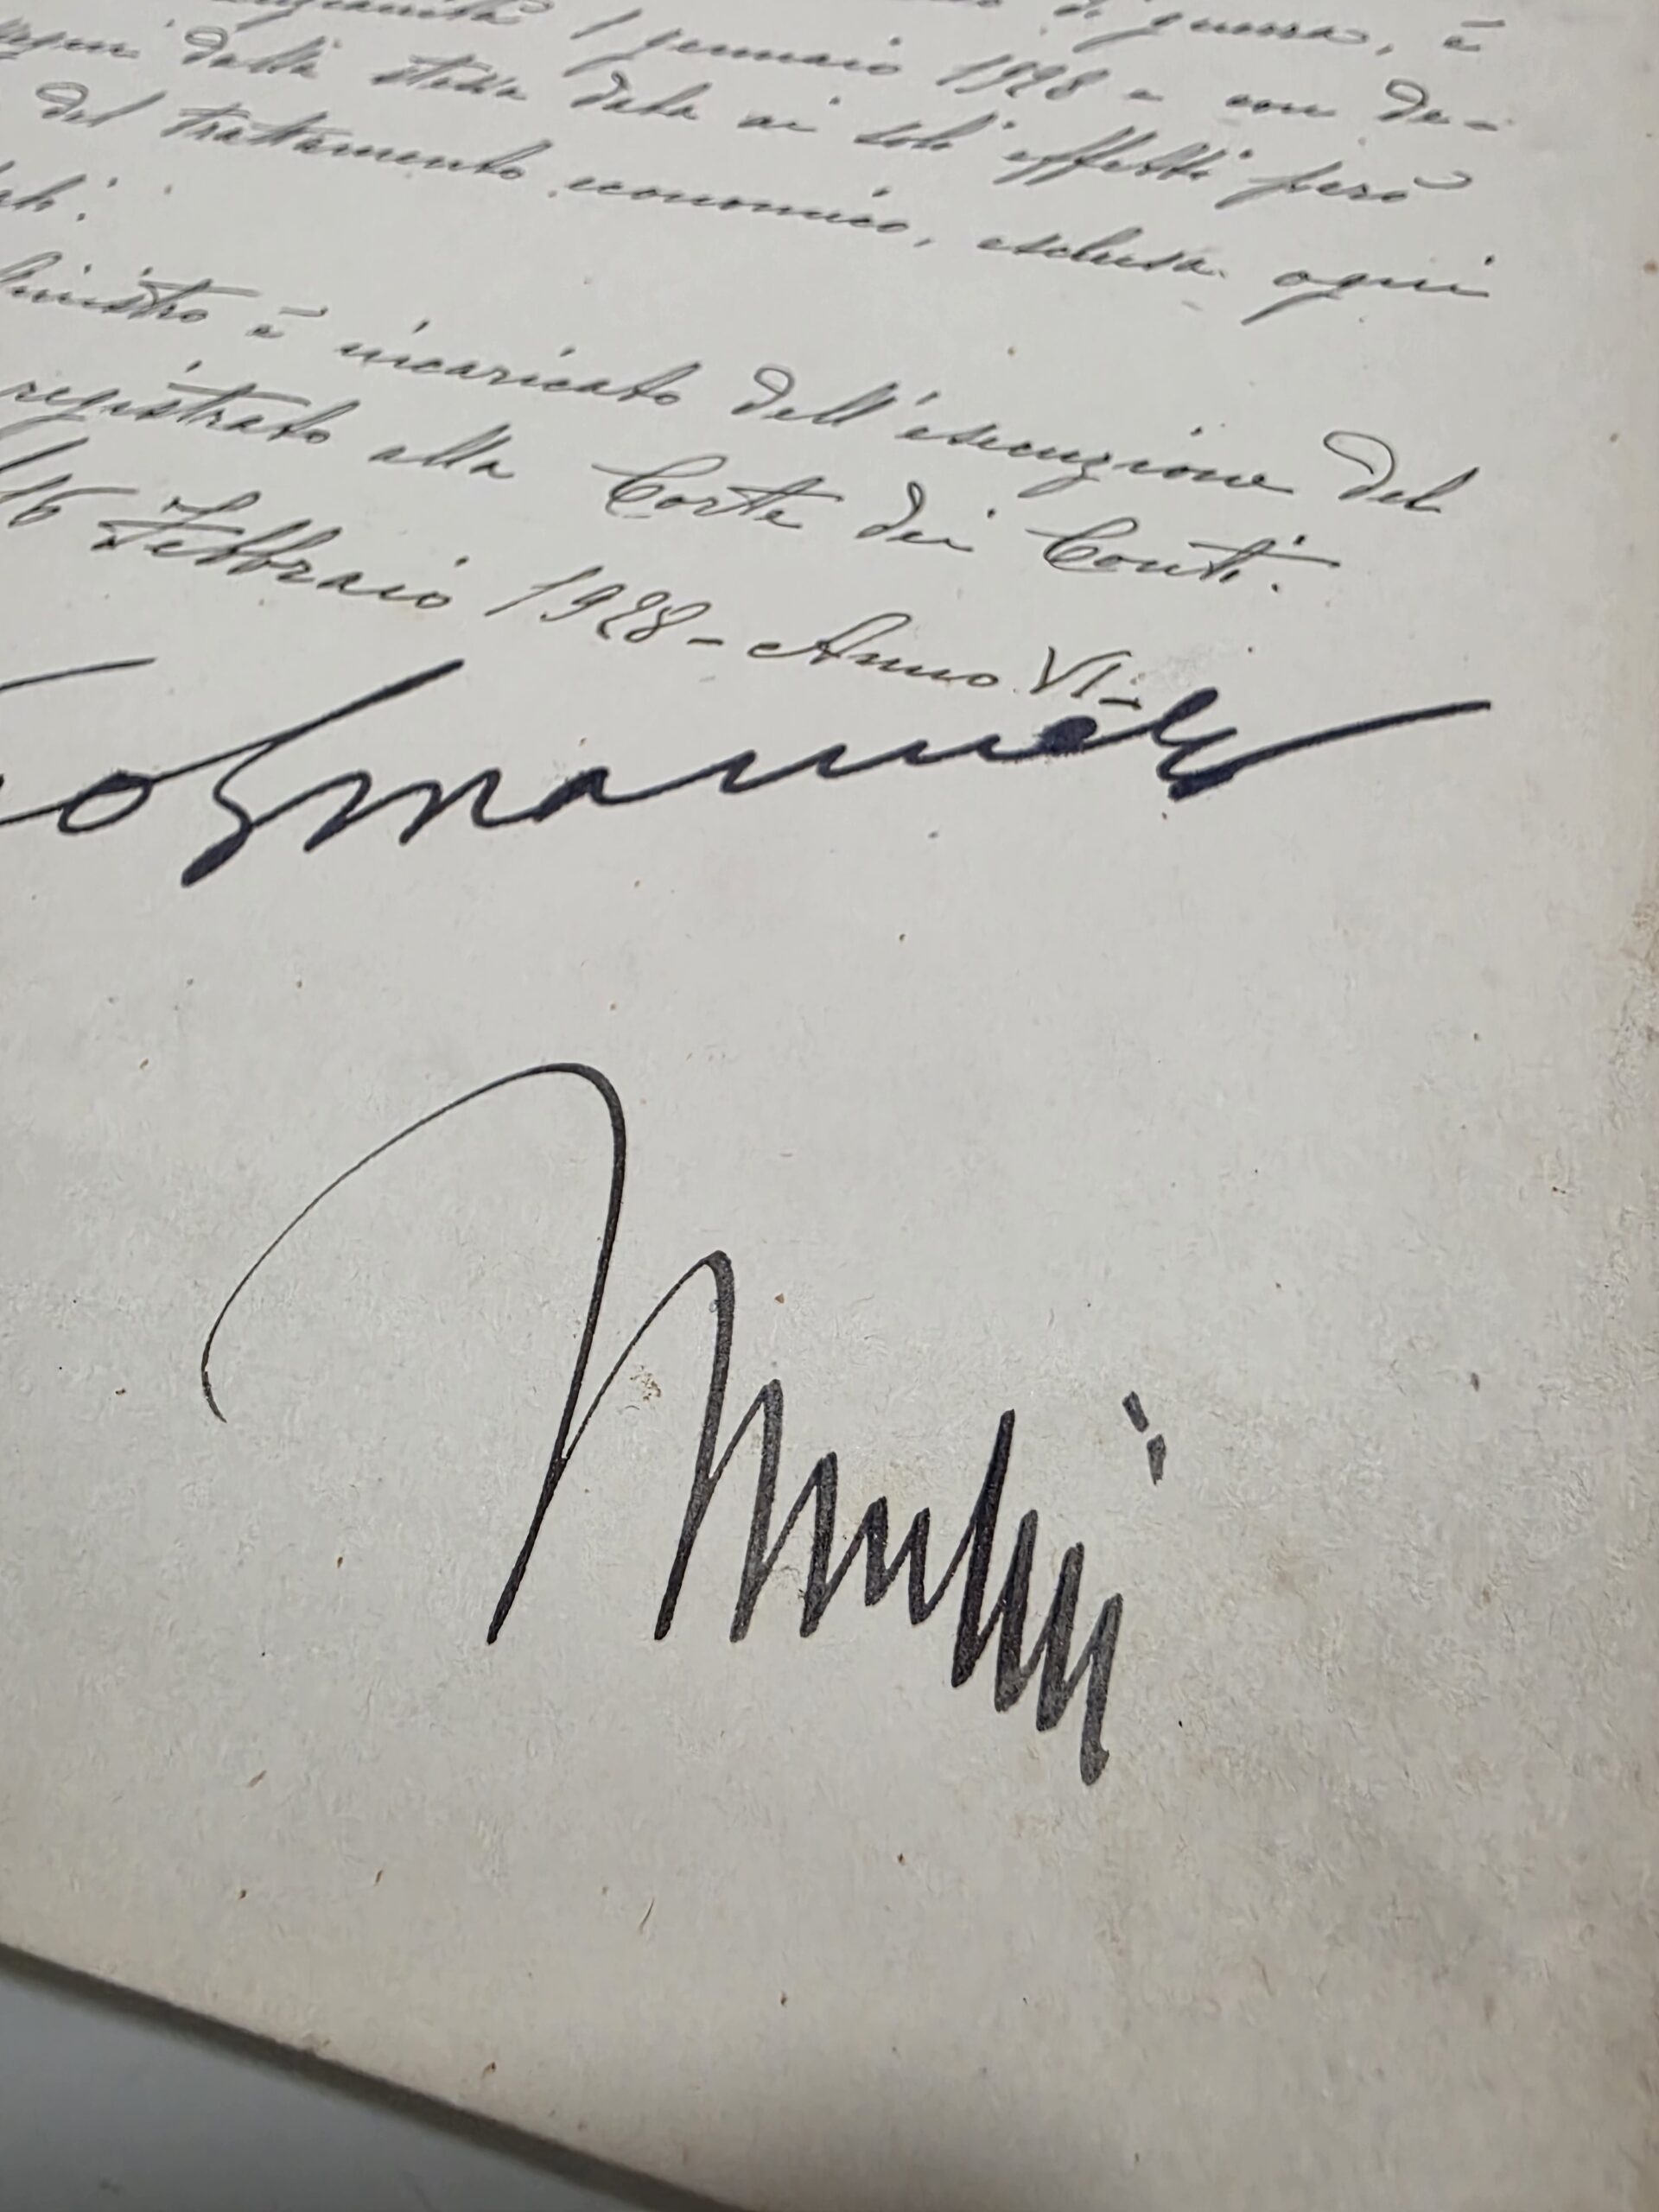 di guerra, è
1 gennaio 1928 e con de-
dalla stessa data ai soli effetti però
del trattamento economico, esclusa ogni
è incaricato dell'esecuzione del
registrato alla Corte dei Conti.
16 Febbraio 1928 - Anno VI -
Emanuele
Mussolini